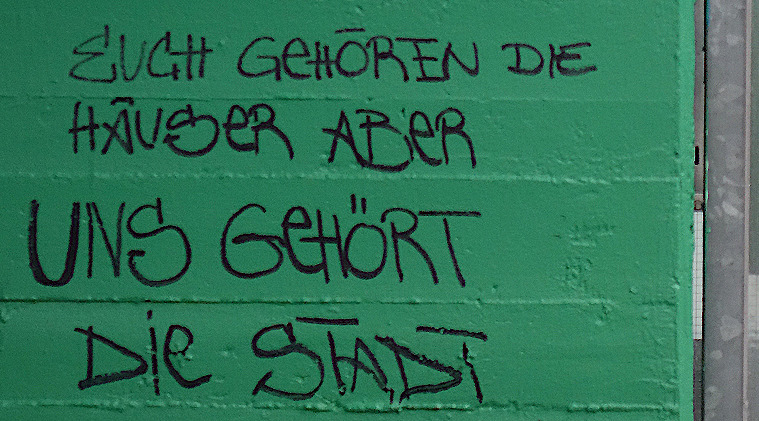 EUCH GEHÖREN DIE
HÄUSER ABER
UNS GEHÖRT
DIE STADT